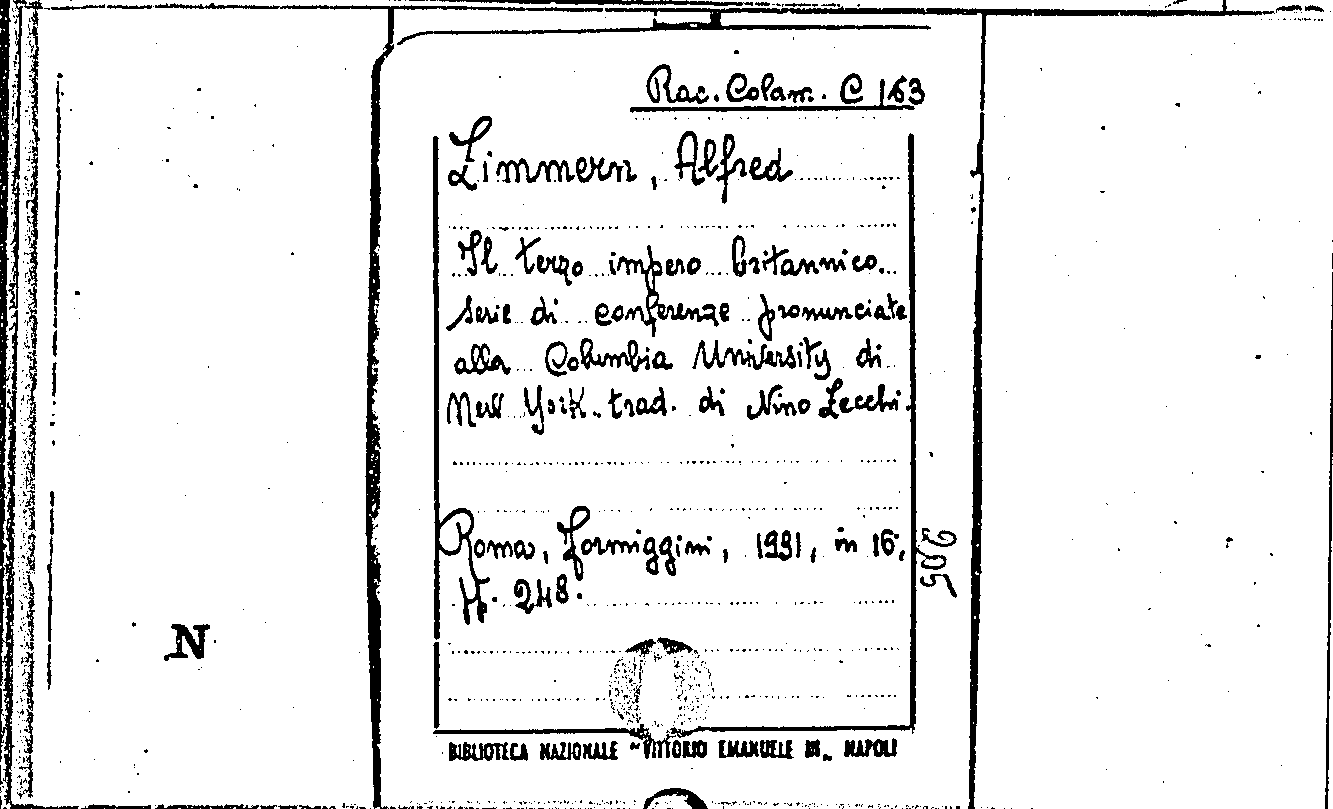 Rac. Colam. C 163
Zimmern, Alfred
Il terzo impero britannico.
serie di conferenze pronunciate
alla Columbia University di
New York. trad. di Nino Zecchi.
Roma, Formiggini, 1931, in 16,
pp. 248.
205
N
BIBLIOTECA NAZIONALE "VITTORIO EMANUELE III" NAPOLI